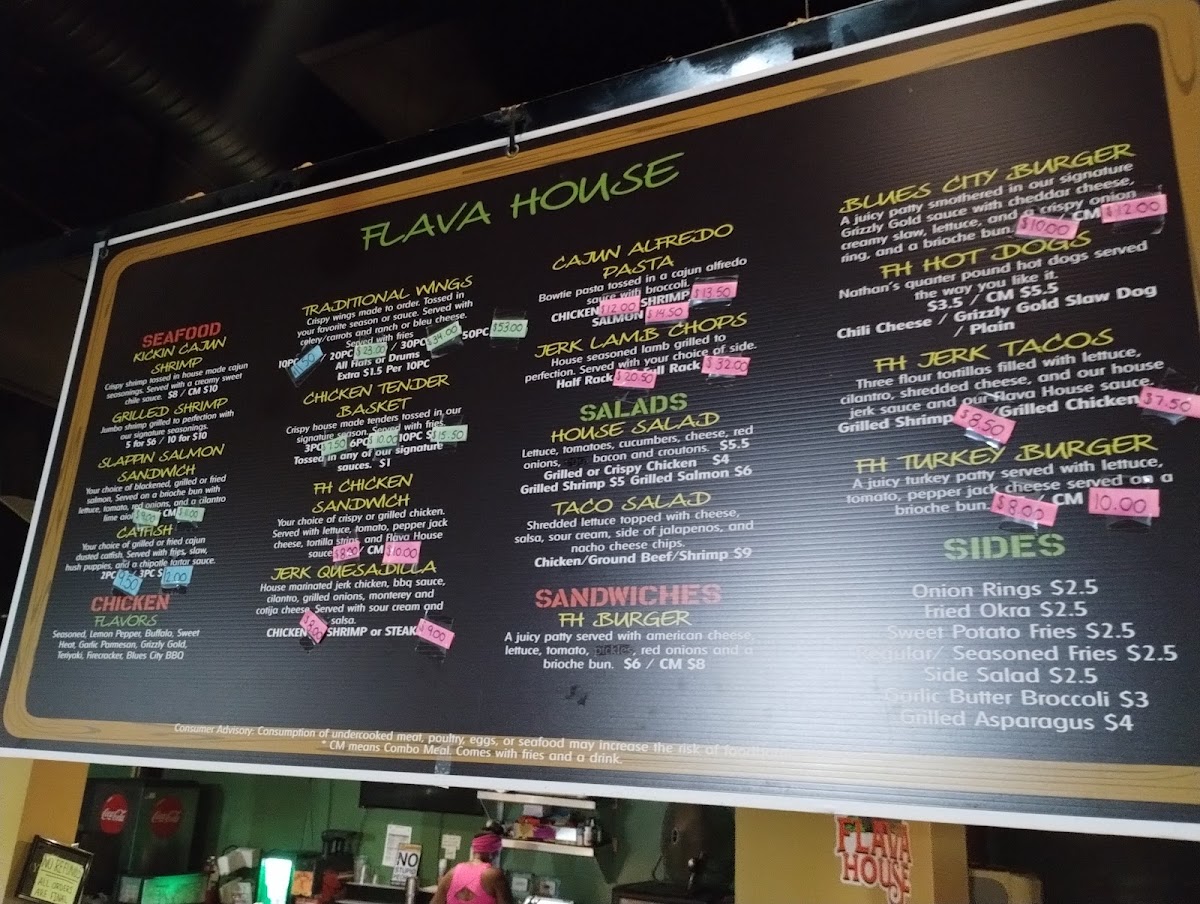 FLAVA HOUSE
SEAFOOD
KICKIN CAJUN
SHRIMP
Crispy shrimp tossed in house made cajun
seasonings. Served with a creamy sweet
chile sauce. $8 / CM $10
GRILLED SHRIMP
Jumbo shrimp grilled to perfection with
our signature seasonings.
5 for $6 / 10 for $10
SLAPPIN SALMON
SANDWICH
Your choice of blackened, grilled or fried
salmon, Served on a brioche bun with
lettuce, tomato, red onions, and a cilantro
lime aioli
CM
CATFISH
Your choice of grilled or fried cajun
dusted catfish. Served with fries, slaw,
hush puppies, and a chipotle tartar sauce.
2PC 9.50 / 3PC $
CHICKEN
FLAVORS
Seasoned, Lemon Pepper, Buffalo, Sweet
Heat, Garlic Parmesan, Grizzly Gold,
Teriyaki, Firecracker, Blues City BBQ
TRADITIONAL WINGS
Crispy wings made to order. Tossed in
your favorite season or sauce. Served with
celery/carrots and ranch or bleu cheese.
Served with fries.
10PC / 20PC $23.00 / 30PC $34.00 50PC $53.00
All Flats or Drums
Extra $1.5 Per 10PC
CHICKEN TENDER
BASKET
Crispy house made tenders tossed in our
signature season. Served with fries.
3PC $7.50 6PC $10.00 10PC $15.50
Tossed in any of our signature
sauces. $1
FH CHICKEN
SANDWICH
Your choice of crispy or grilled chicken.
Served with lettuce, tomato, pepper jack
cheese, tortilla strips, and Flava House
sauce / CM $10.00
JERK QUESADILLA
House marinated jerk chicken, bbq sauce,
cilantro, grilled onions, monterey and
cotija cheese. Served with sour cream and
salsa.
CHICKEN $8.00 SHRIMP or STEAK $9.00
CAJUN ALFREDO
PASTA
Bowtie pasta tossed in a cajun alfredo
sauce with broccoli.
CHICKEN $12.00 SHRIMP $13.50
SALMON $14.50
JERK LAMB CHOPS
House seasoned lamb grilled to
perfection. Served with your choice of side.
Half Rack $20.50 Full Rack $32.00
SALADS
HOUSE SALAD
Lettuce, tomatoes, cucumbers, cheese, red
onions, bacon and croutons. $5.5
Grilled or Crispy Chicken $4
Grilled Shrimp $5 Grilled Salmon $6
TACO SALAD
Shredded lettuce topped with cheese,
salsa, sour cream, side of jalapenos, and
nacho cheese chips.
Chicken/Ground Beef/Shrimp $9
SANDWICHES
FH BURGER
A juicy patty served with american cheese,
lettuce, tomato, pickles, red onions and a
brioche bun. $6 / CM $8
BLUES CITY BURGER
A juicy patty smothered in our signature
Grizzly Gold sauce with cheddar cheese,
creamy slaw, lettuce, and a crispy onion
ring, and a brioche bun. $10.00 CM $12.00
FH HOT DOGS
Nathan's quarter pound hot dogs served
the way you like it.
$3.5 / CM $5.5
Chili Cheese / Grizzly Gold Slaw Dog
/ Plain
FH JERK TACOS
Three flour tortillas filled with lettuce,
cilantro, shredded cheese, and our house
jerk sauce and our Flava House sauce.
Grilled Shrimp $8.50 /Grilled Chicken $7.50
FH TURKEY BURGER
A juicy turkey patty served with lettuce,
tomato, pepper jack cheese served on a
brioche bun. $8.00 CM 10.00
SIDES
Onion Rings $2.5
Fried Okra $2.5
Sweet Potato Fries $2.5
Regular/ Seasoned Fries $2.5
Side Salad $2.5
Garlic Butter Broccoli $3
Grilled Asparagus $4
Consumer Advisory: Consumption of undercooked meat, poultry, eggs, or seafood may increase the risk of
* CM means Combo Meal. Comes with fries and a drink.
Coca-Cola
Coca-Cola
NO REFUNDS
ALL ORDERS
ARE FINAL
NO
STUPID
FLAVA
HOUSE